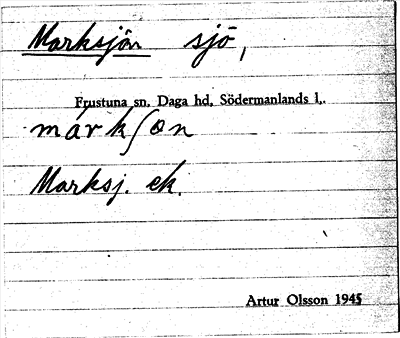 Marksjön sjö,
Frustuna sn. Daga hd, Södermanlands l.
márkʃøn
Marksj. ek.
Artur Olsson 1945